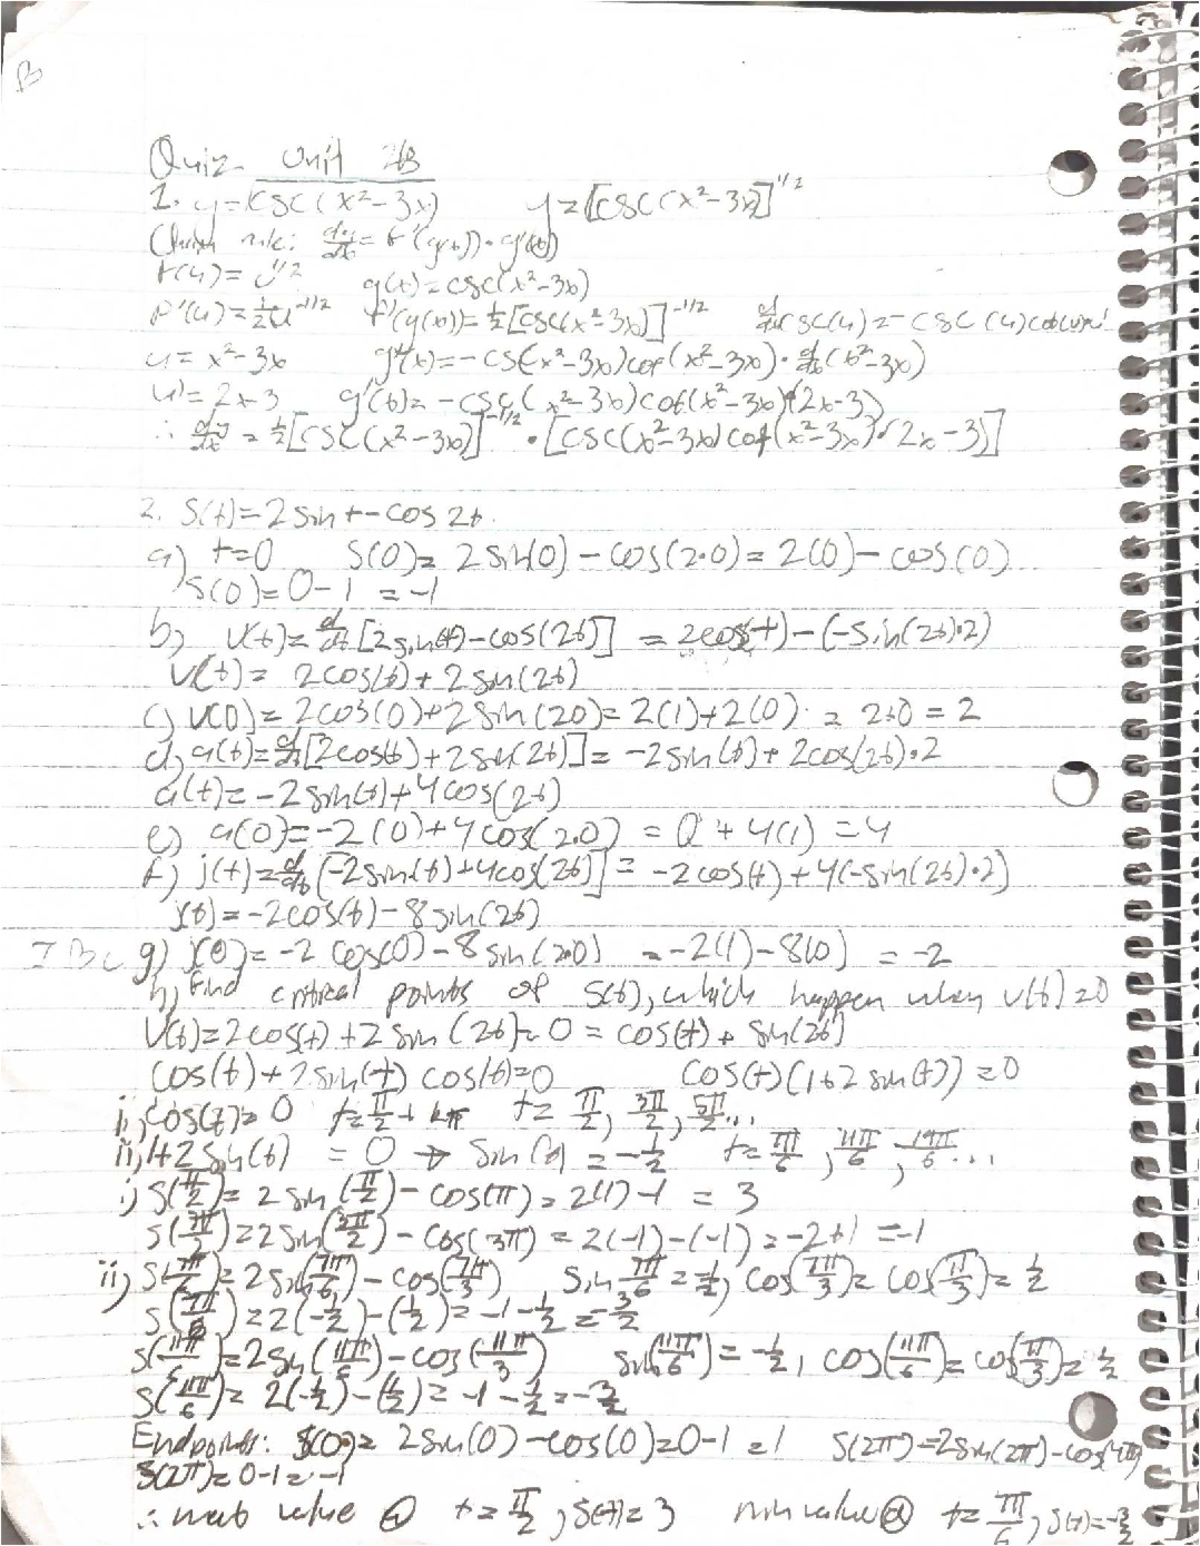 B
Quiz Unit 2B
1. y=√csc(x²-3x) y=[csc(x²-3x)]^1/2
Chain rule: dy/dx = f'(g(x))·g'(x)
f(u)= u^1/2 g(x)=csc(x²-3x)
f'(u)=1/2u^-1/2 f'(g(x))=1/2[csc(x²-3x)]^-1/2 d/dx csc(u)=-csc(u)cot(u)·u'
u= x²-3x g'(x)=-csc(x²-3x)cot(x²-3x)·d/dx(x²-3x)
u'=2x-3 g'(x)=-csc(x²-3x)cot(x²-3x)·(2x-3)
∴ dy/dx = 1/2[csc(x²-3x)]^-1/2 · [csc(x²-3x)cot(x²-3x)·(2x-3)]
2. s(t)=2sin t-cos 2t.
a) t=0 s(0)= 2sin(0)-cos(2·0)=2(0)-cos(0)
s(0)=0-1 =-1
b) v(t)=d/dt[2sin(t)-cos(2t)] =2cos(t)-(-sin(2t)·2)
v(t)= 2cos(t)+2sin(2t)
c) v(0)=2cos(0)+2sin(2·0)=2(1)+2(0) = 2+0=2
d) a(t)=d/dt[2cos(t)+2sin(2t)]=-2sin(t)+2cos(2t)·2
a(t)=-2sin(t)+4cos(2t)
e) a(0)=-2(0)+4cos(2·0) = 0+4(1)=4
f) j(t)=d/dt[-2sin(t)+4cos(2t)]=-2cos(t)+4(-sin(2t)·2)
j(t)=-2cos(t)-8sin(2t)
IBC g) j(0)=-2cos(0)-8sin(2·0) =-2(1)-8(0) =-2
h) Find critical points of s(t), which happen when v(t)=0
v(t)=2cos(t)+2sin(2t)=0=cos(t)+sin(2t)
cos(t)+2sin(t)cos(t)=0 cos(t)(1+2sin(t))=0
i) cos(t)=0 t=π/2+kπ t=π/2, 3π/2, 5π/2...
ii) 1+2sin(t) = 0 → sin(t)=-1/2 t=7π/6, 11π/6, 19π/6...
i) s(π/2)=2sin(π/2)-cos(π)=2(1)-1 = 3
s(3π/2)=2sin(3π/2)-cos(3π)=2(-1)-(-1)=-2+1=-1
ii) s(7π/6)=2sin(7π/6)-cos(7π/3) sin 7π/6=-1/2, cos(7π/3)=cos(π/3)=1/2
s(7π/6)=2(-1/2)-(1/2)=-1-1/2=-3/2
s(11π/6)=2sin(11π/6)-cos(11π/3) sin(11π/6)=-1/2, cos(11π/6)=cos(π/3)=1/2
s(11π/6)= 2(-1/2)-(1/2)=-1-1/2=-3/2
Endpoints: s(0)= 2sin(0)-cos(0)=0-1=1 s(2π)=2sin(2π)-cos(4π)
s(2π)=0-1=-1
∴ max value @ t=π/2, s(t)=3 min value @ t=7π/6, s(t)=-3/2